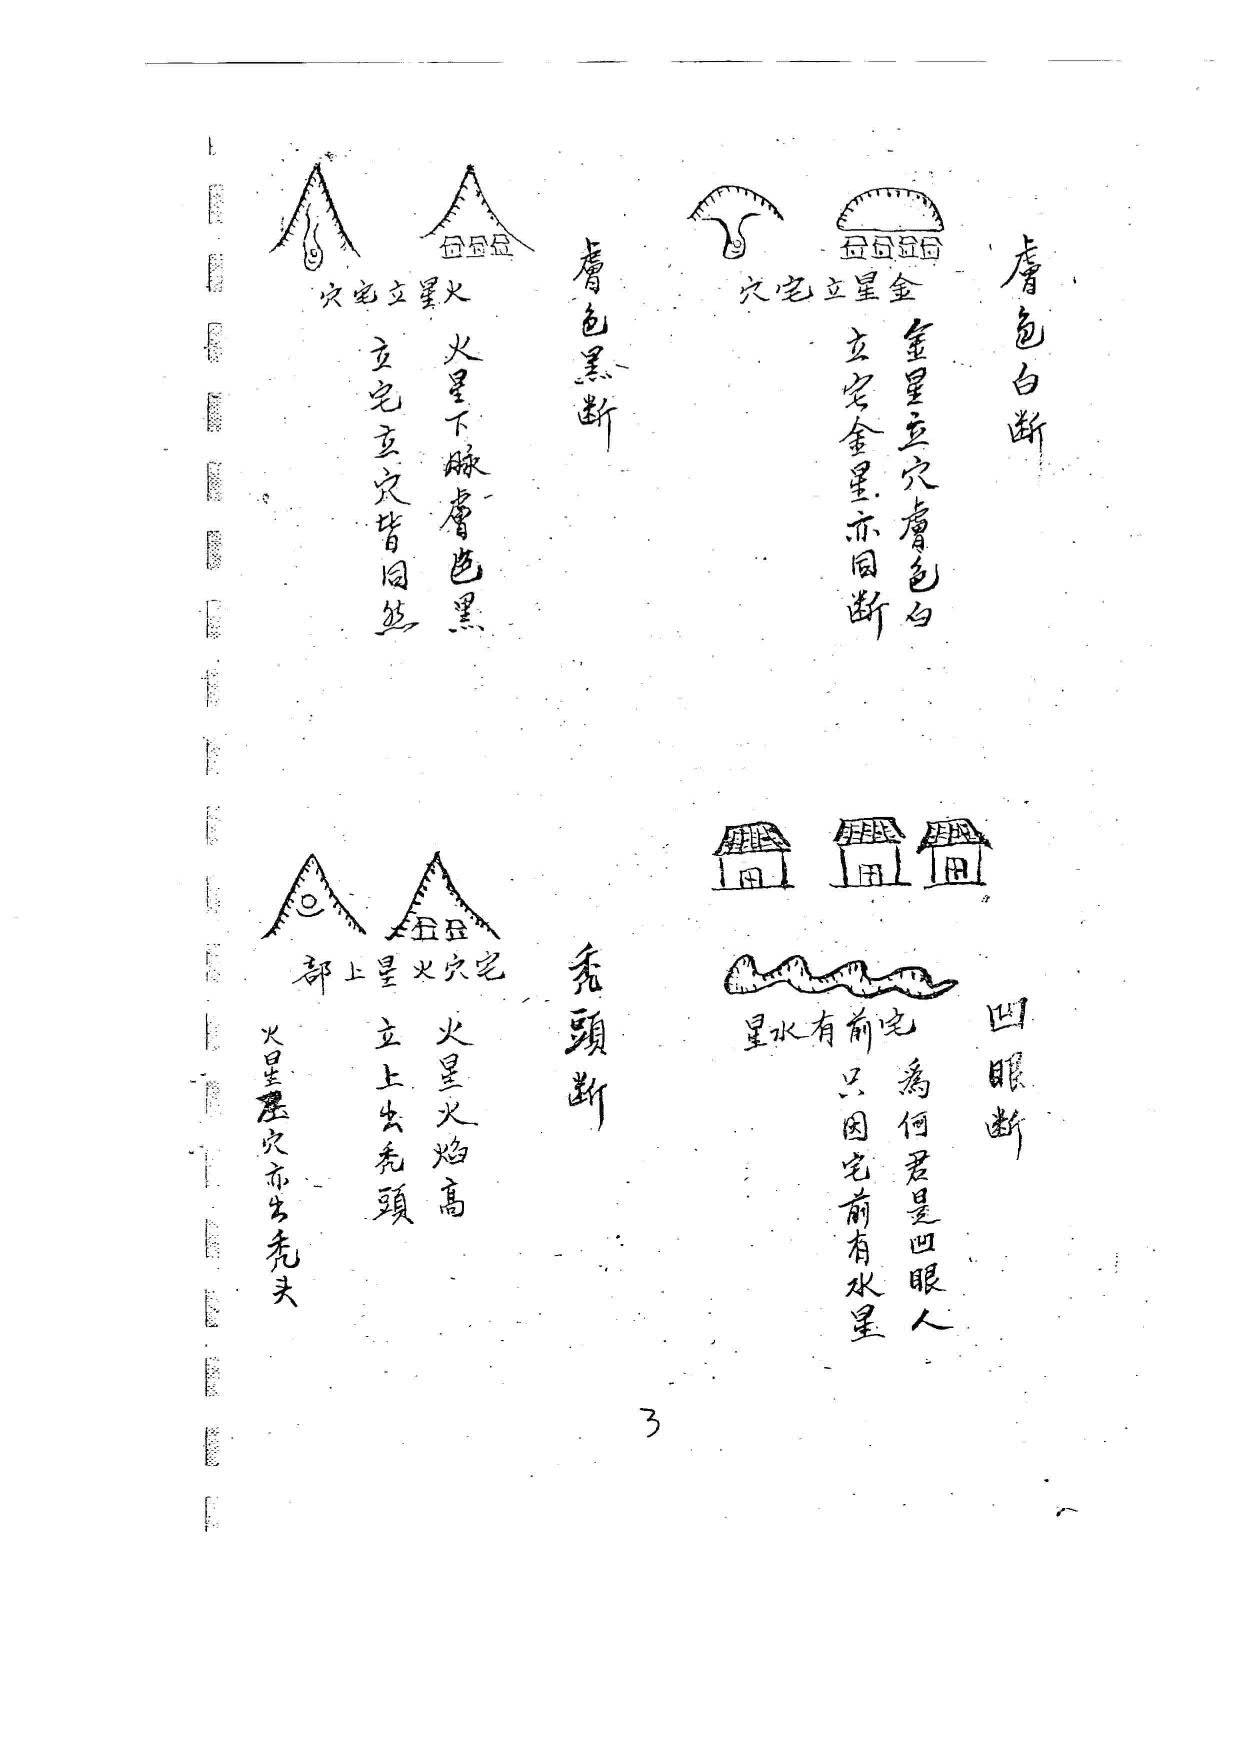 膚色白断
金星立宅穴
金星立穴膚色白
立宅金星亦同断
膚色黑断
火星立宅穴
火星下脉膚色黑
立宅立穴皆同然
凹眼断
宅前有水星
為何君是凹眼人
只因宅前有水星
禿頭断
宅穴火星上部
火星火焰高
立上出禿頭
火星 穴亦出禿头
3